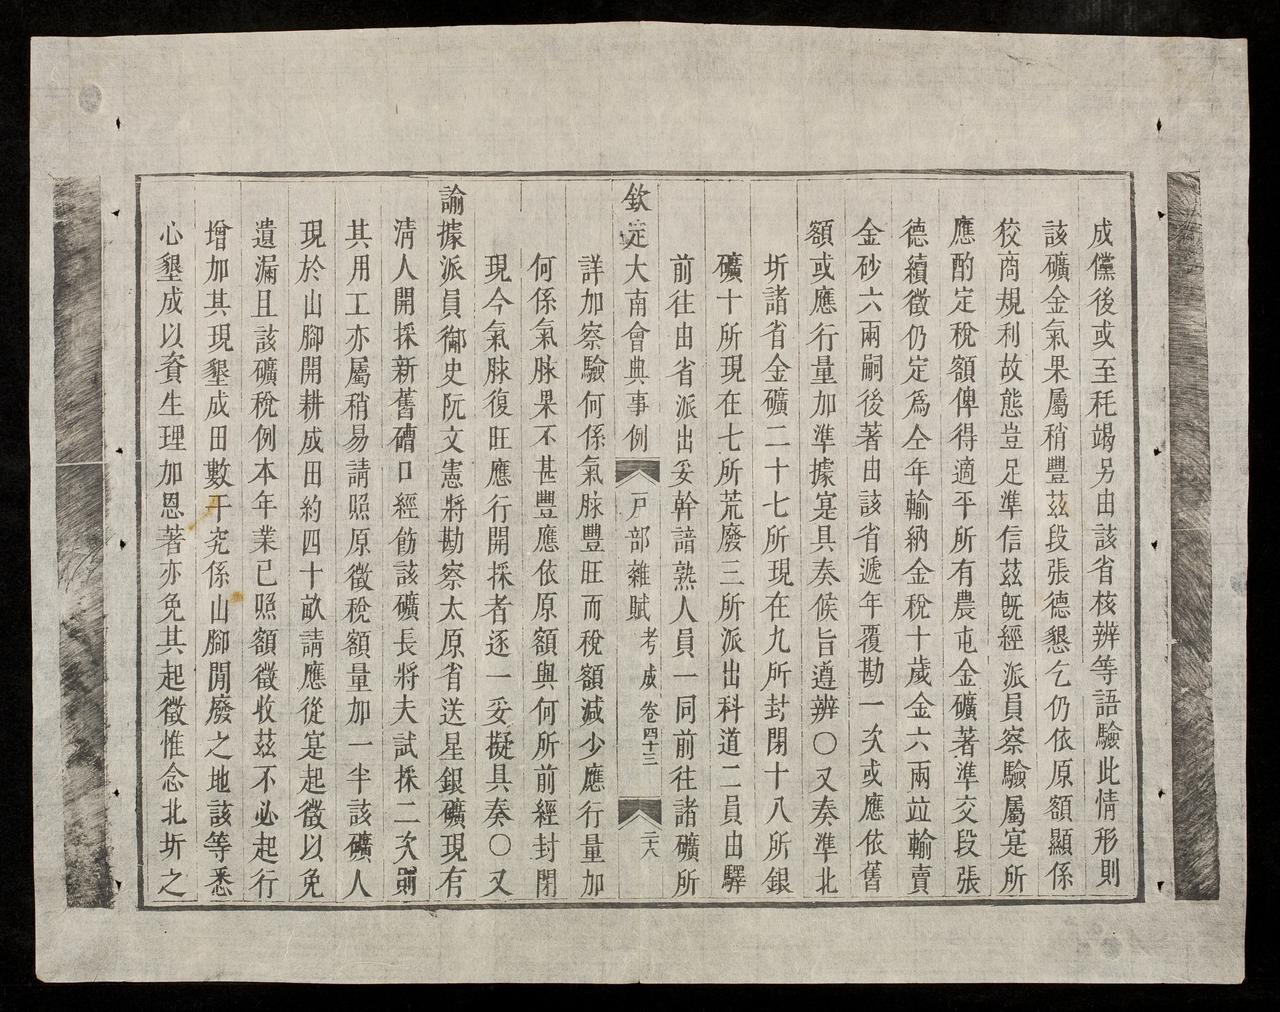 成儻後或至耗竭另由該省核辨等語驗此情形則
該礦金氣果屬稍豐茲段張德懇乞仍依原額顯係
狡商規利故態豈足準信茲旣經派員察驗屬寔所
應酌定稅額俾得適平所有農屯金礦著準交段張
德續徵仍定爲仝年輸納金稅十歲金六兩竝輸賣
金砂六兩嗣後著由該省遞年覆勘一次或應依舊
額或應行量加準據寔具奏候旨遵辨〇又奏準北
圻諸省金礦二十七所現在九所封閉十八所銀
礦十所現在七所荒廢三所派出科道二員由驛
前往由省派出妥幹諳熟人員一同前往諸礦所
欽定大南會典事例 戸部雜賦 考成 卷四十三 二六
詳加察驗何係氣脉豐旺而稅額減少應行量加
何係氣脉果不甚豐應依原額與何所前經封閉
現今氣脉復旺應行開採者逐一妥擬具奏〇又
諭據派員御史阮文憲將勘察太原省送星銀礦現有
淸人開採新舊礦口經飭該礦長將夫試採二次
其用工亦屬稍易請照原徵稅額量加一半該礦人
現於山腳開耕成田約四十畝請應從寔起徵以免
遺漏且該礦稅例本年業已照額徵收茲不必起行
增加其現墾成田數干究係山腳閒廢之地該等悉
心墾成以資生理加恩著亦免其起徵惟念北圻之